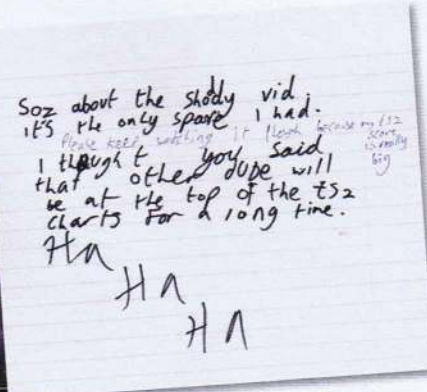 Soz about the shoddy vid.
it's the only spare I had.
Please keep watching it though because my ts2
score
is really
big
I thought you said
that other dude will
be at the top of the ts2
charts for a long time.
Ha
Ha
Ha